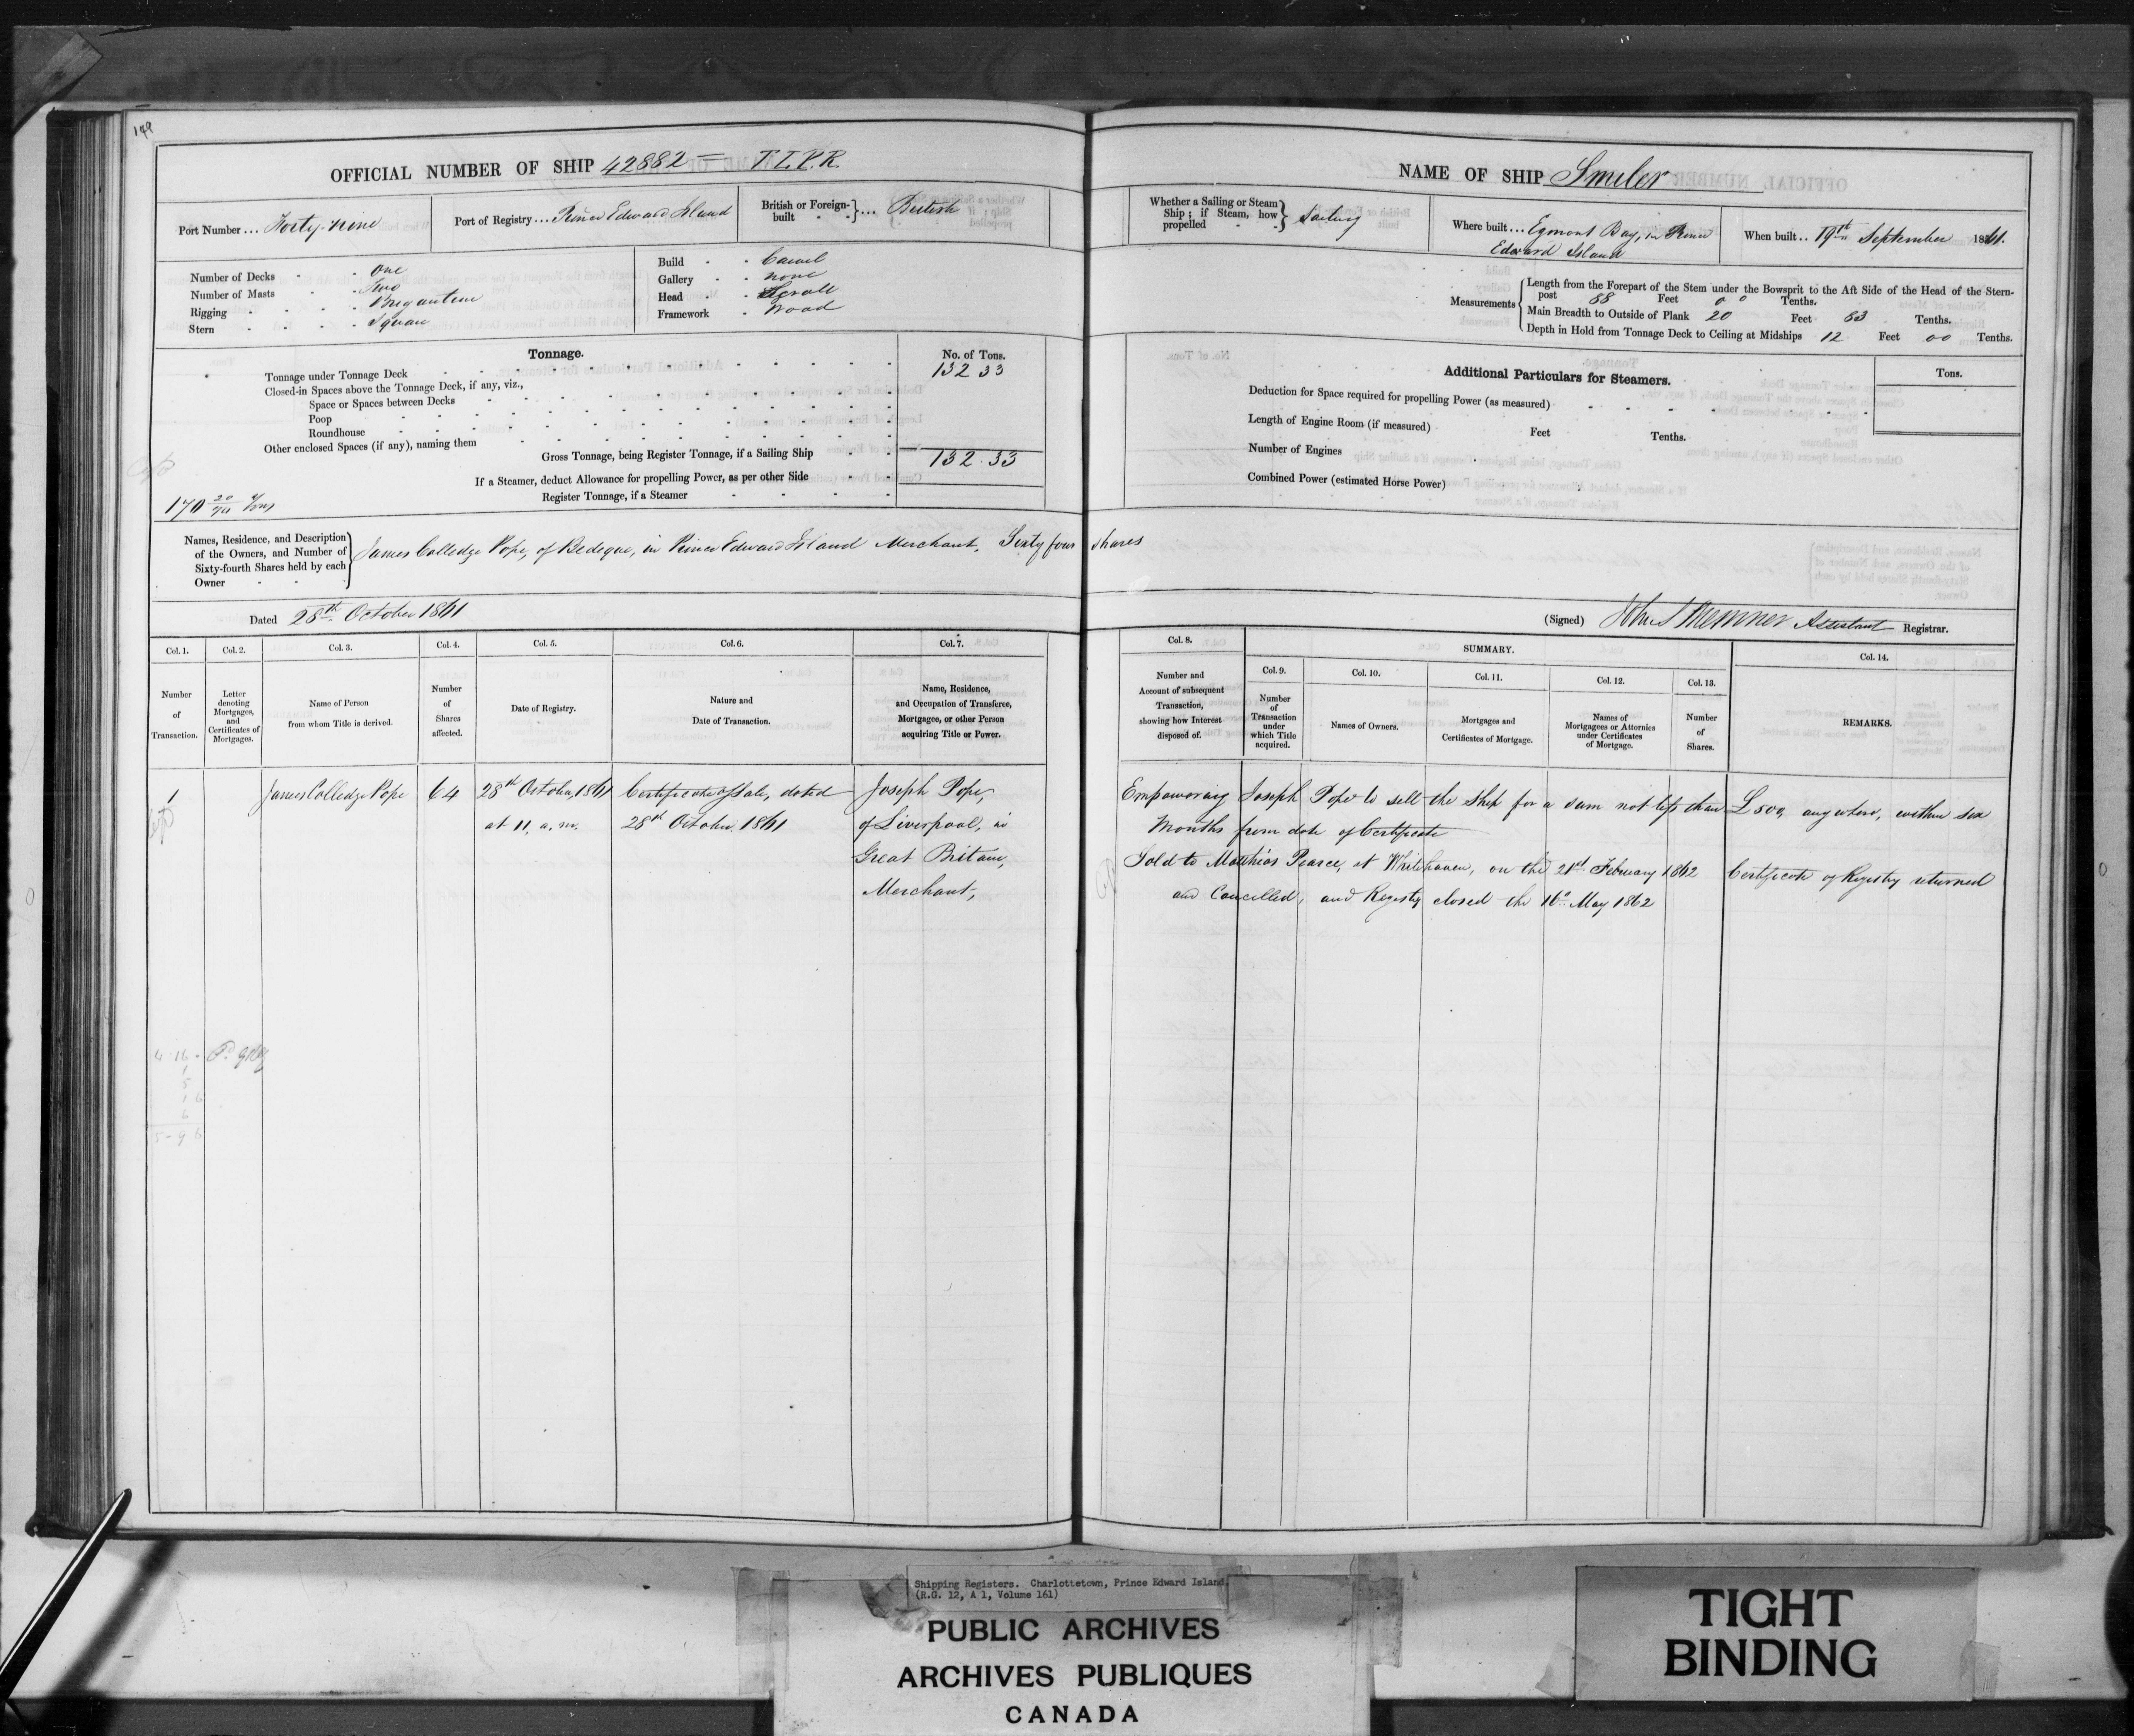 149
OFFICIAL NUMBER OF SHIP 42882 = T.T.P.R.
Port Number ... Forty-nine
Port of Registry ... Prince Edward Island
British or Foreign-built ... British
Number of Decks - - One
Number of Masts - - Two
Rigging - - - - Brigantine
Stern - - - - Square
Build - - Carvel
Gallery - - none
Head - - Scroll
Framework - Wood
Tonnage.
No. of Tons.
Tonnage under Tonnage Deck 132 33
Closed-in Spaces above the Tonnage Deck, if any, viz.,
Space or Spaces between Decks
Poop
Roundhouse
Other enclosed Spaces (if any), naming them
Gross Tonnage, being Register Tonnage, if a Sailing Ship 132.33
If a Steamer, deduct Allowance for propelling Power, as per other Side
Register Tonnage, if a Steamer
170
Names, Residence, and Description
of the Owners, and Number of
Sixty-fourth Shares held by each
Owner - -
James Colledge Pope, of Bedeque, in Prince Edward Island Merchant, Sixty four shares
Dated 28th October 1861
Col. 1. Col. 2. Col. 3. Col. 4. Col. 5. Col. 6. Col. 7.
Number
of
Transaction.
Letter
denoting
Mortgages,
and
Certificates of
Mortgages.
Name of Person
from whom Title is derived.
Number
of
Shares
affected.
Date of Registry.
Nature and
Date of Transaction.
Name, Residence,
and Occupation of Transferee,
Mortgagee, or other Person
acquiring Title or Power.
1 James Colledge Pope 64 28th October, 1861 Certificate of Sale, dated Joseph Pope,
at 11, a.m. 28th October 1861 of Liverpool, in
Great Britain,
Merchant,
NAME OF SHIP Smiler
Whether a Sailing or Steam
Ship; if Steam, how
propelled - -
Sailing
Where built ... Egmont Bay, in Prince
Edward Island
When built .. 19th September 1861.
Measurements
Length from the Forepart of the Stem under the Bowsprit to the Aft Side of the Head of the Stern-
post 88 Feet 00 Tenths.
Main Breadth to Outside of Plank 20 Feet 63 Tenths.
Depth in Hold from Tonnage Deck to Ceiling at Midships 12 Feet 00 Tenths.
Additional Particulars for Steamers.
Tons.
Deduction for Space required for propelling Power (as measured)
Length of Engine Room (if measured) Feet Tenths.
Number of Engines
Combined Power (estimated Horse Power)
(Signed) Assistant Registrar.
Col. 8.
SUMMARY.
Col. 9. Col. 10. Col. 11. Col. 12. Col. 13. Col. 14.
Number and
Account of subsequent
Transaction,
showing how Interest
disposed of.
Number
of
Transaction
under
which Title
acquired.
Names of Owners.
Mortgages and
Certificates of Mortgage.
Names of
Mortgagees or Attornies
under Certificates
of Mortgage.
Number
of
Shares.
REMARKS.
Empowering Joseph Pope to sell the Ship for a sum not less than £500, anywhere, within six
Months from date of Certificate
Sold to Matthias Pearce, at Whitehaven, on the 21st February 1862 Certificate of Registry returned
and Cancelled, and Registry closed the 16th May 1862
Shipping Registers. Charlottetown, Prince Edward Island
(R.G. 12, A 1, Volume 161)
PUBLIC ARCHIVES
ARCHIVES PUBLIQUES
CANADA
TIGHT
BINDING